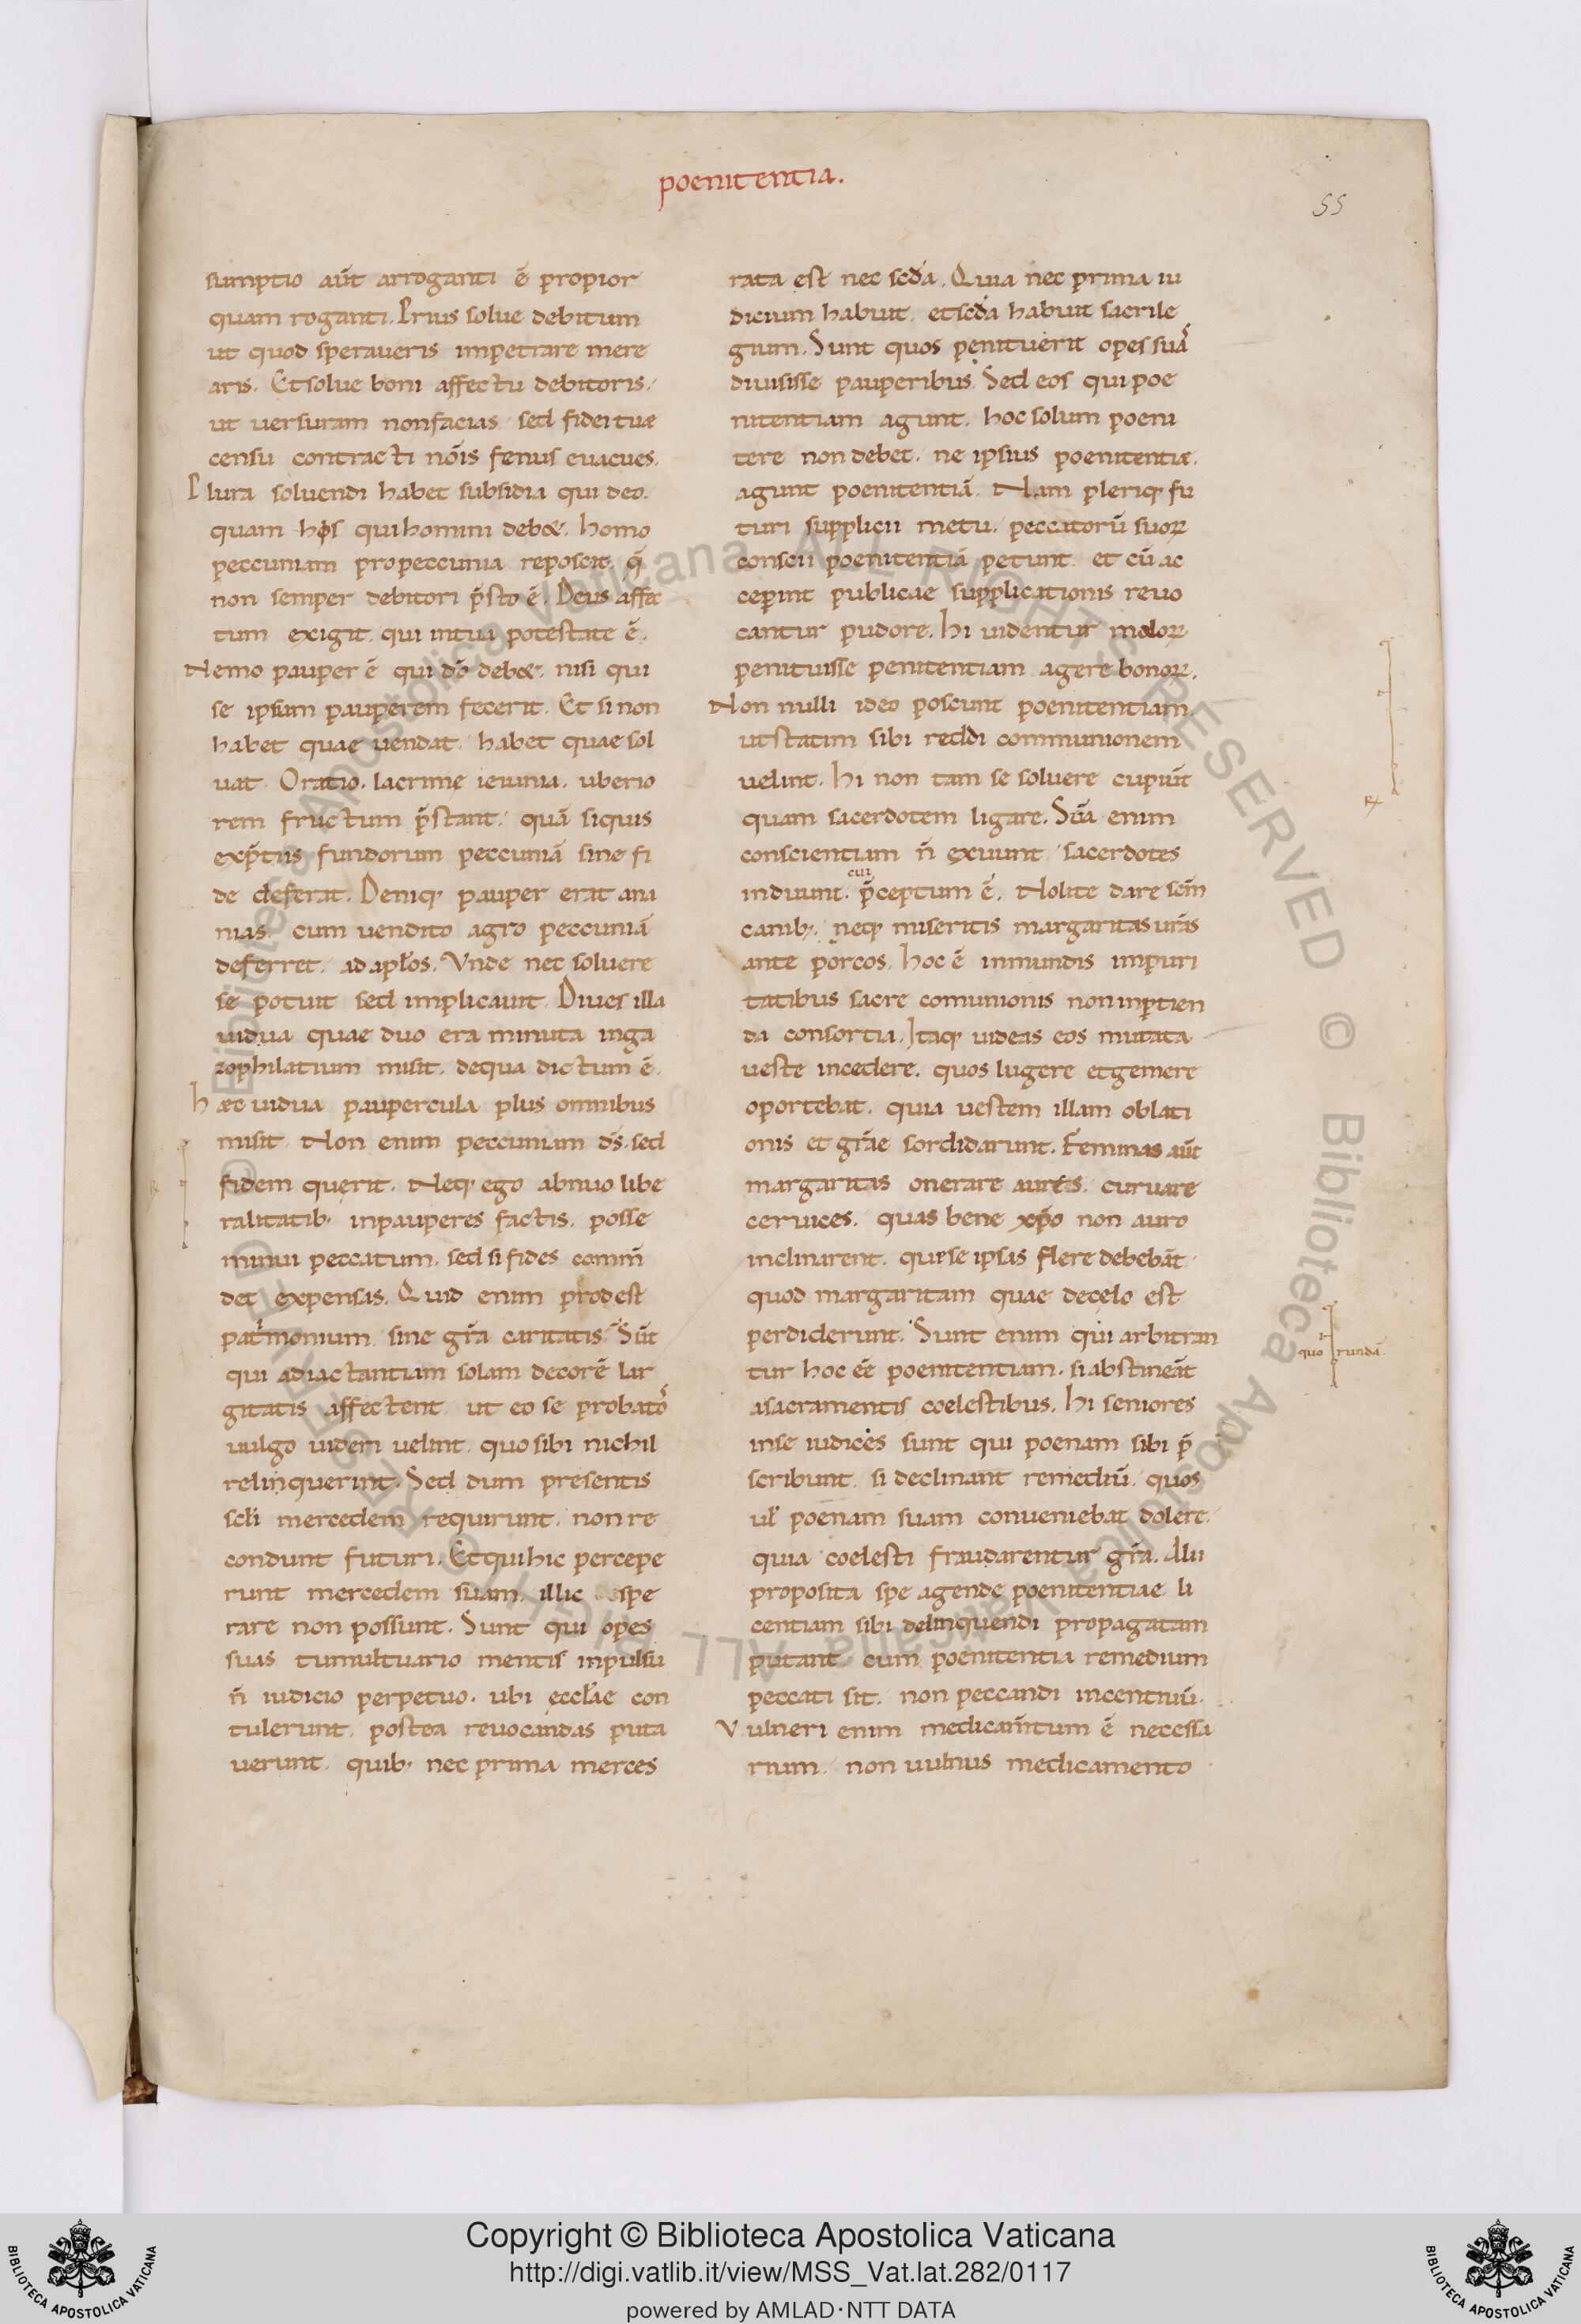 poenitentia.
55
sumptio aūt arroganti ē propior
quam roganti. Prius solue debitum
ut quod speraueris impetrare mere
aris. Et solue boni affectu debitoris,
ut uersuram non facias, sed fidei tuae
censu contracti nōis fenus euacues.
Plura soluendi habet subsidia qui deo.
quam his qui homini deb&. homo
peccuniam pro peccunia reposcit. q̄
non semper debitori p̄sto ē. Deus affec
tum exigit. qui in tua potestate ē.
Nemo pauper ē qui dō deb&. nisi qui
se ipsum pauperem fecerit. Et si non
habet quae uendat. habet quae sol
uat. Oratio. lacrimę ieiunia. uberio
rem fructum p̄stant. quā siquis
exp̄tiis fundorum peccuniā sine fi
de deferat. Deniq; pauper erat ana
nias. cum uendito agro peccuniā
deferret. ad apłos. Vnde nec soluere
se potuit sed implicauit. Diues illa
uidua quae duo era minuta in ga
zophilatium misit. de qua dictum ē.
hæc uidua paupercula plus omnibus
misit. Non enim peccuniam ds̄. sed
fidem querit. Neq; ego abnuo libe
ralitatib; in pauperes factis. posse
minui peccatum. sed si fides com̄m
det expensas. Quid enim prodest
patrimonium sine gr̄a caritatis. Sūt
qui ad iactantiam solam decorē lar
gitatis affectent ut eo se probatos
uulgo uideri uelint. quo sibi nichil
relinquerint. Sed dum presentis
scłi mercedem requirunt. non re
condunt futuri. Et qui hic percepe
runt mercedem suam. illic spe
rare non possunt. Sunt qui opes
suas tumultuario mentis inpulsu
n̄ iudicio perpetuo. ubi ęccłae con
tulerunt. postea reuocandas puta
uerunt. quib; nec prima merces
rata est nec scđa. Quia nec prima iu
dicium habuit. et scđa habuit sacrile
gium. Sunt quos penituerit opes suas
diuisisse pauperibus. Sed eos qui poe
nitentiam agunt. hoc solum poeni
tere non debet. ne ipsius poenitentiæ.
agunt poenitentiā. Nam pleriq; fu
turi supplicii metu. peccatorū suoꝝ
conscii poenitentiā petunt. et cū ac
ceperint publicae supplicationis reuo
cantur pudore. hi uidentur maloꝝ
penituisse penitentiam agere bonoꝝ.
Non nulli ideo poscunt poenitentiam.
ut statim sibi reddi communionem
uelint. hi non tam se soluere cupiūt
quam sacerdotem ligare. Suā enim
conscientiam n̄ exuunt sacerdotes
cui
induunt. p̄ceptum ē. Nolite dare sc̄m
canib;. neq; miseritis margaritas urās
ante porcos. hoc ē inmundis impuri
tatibus sacre comunionis non inp̄tien
da consortia. Itaq; uideas eos mutata
ueste incedere. quos lugere et gemere
oportebat. quia uestem illam oblati
onis et gr̄ae sordidarunt. Feminas aūt
margaritas onerare aures. curuare
ceruices. quas bene xp̄o non auro
inclinarent. que se ipsas flere debebāt
quod margaritam quae de celo est
perdiderunt. Sunt enim qui arbitran
tur hoc ēē poenitentiam. si abstineāt
a sacramentis coelestibus. hi seniores
in se iudices sunt qui poenam sibi p̄
scribunt. si declinant remediū. quos
uł poenam suam conueniebat dolere.
quia coelesti fraudarentur gr̄a. Alii
proposita spe agende poenitentiae li
centiam sibi delinquendi propagatam
putant cum poenitentia remedium
peccati sit. non peccandi incentiuū.
Vulneri enim medicam̄tum ē necessa
rium. non uulnus medicamento
quo rundā.
Copyright © Biblioteca Apostolica Vaticana
http://digi.vatlib.it/view/MSS_Vat.lat.282/0117
powered by AMLAD·NTT DATA
BIBLIOTECA APOSTOLICA VATICANA
BIBLIOTECA APOSTOLICA VATICANA